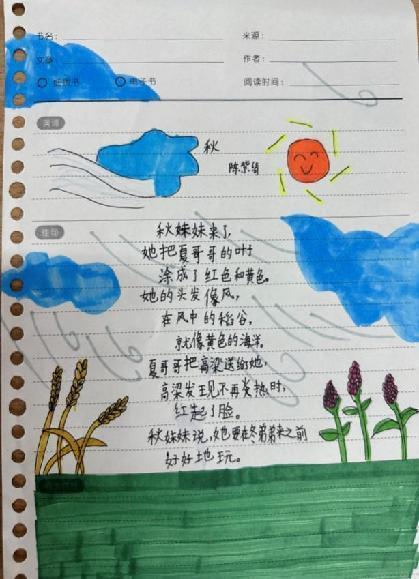 书名：
来源：
文章
作者：
纸质书
电子书
阅读时间：
美词
秋
佳句
秋妹妹来了，
她把夏哥哥的叶子
涂成了红色和黄色。
她的头发像风，
在风中的稻谷，
就像黄色的海洋。
夏哥哥把高粱送给她，
高粱发现不再发热时，
红起了脸。
秋妹妹说，她要在冬弟弟来之前
好好地玩。